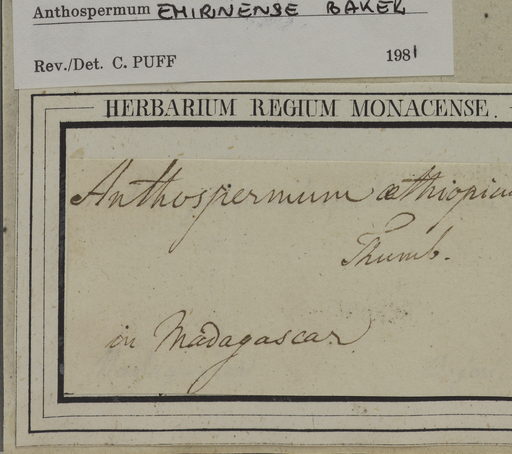 Anthospermum EMIRNENSE BAKER
Rev./Det. C. PUFF 1981
HERBARIUM REGIUM MONACENSE.
Anthospermum æthiopicu
Thumb.
in Madagascar